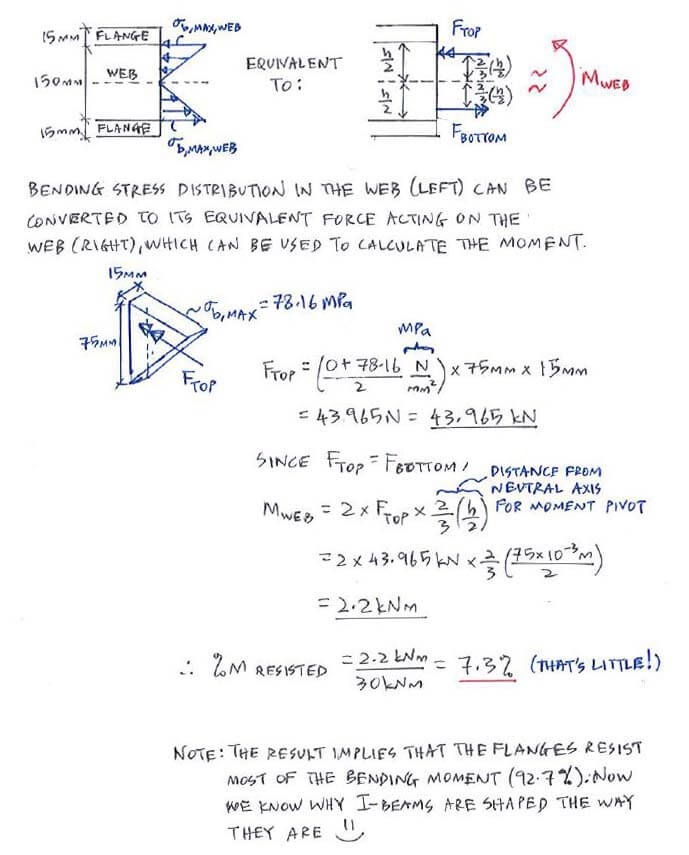 15MM FLANGE σb,MAX,WEB
150MM WEB
15MM FLANGE
σb,MAX,WEB
EQUIVALENT
TO:
FTOP
h/2 2/3(h/2)
h/2 2/3(h/2)
FBOTTOM
≈ MWEB
BENDING STRESS DISTRIBUTION IN THE WEB (LEFT) CAN BE
CONVERTED TO ITS EQUIVALENT FORCE ACTING ON THE
WEB (RIGHT), WHICH CAN BE USED TO CALCULATE THE MOMENT.
15MM
~σb,MAX = 78.16 MPa
75MM
FTOP
MPa
FTOP = (0+78.16/2 N/mm²) × 75mm × 15mm
= 43.965N = 43.965 kN
SINCE FTOP = FBOTTOM,
DISTANCE FROM
NEUTRAL AXIS
FOR MOMENT PIVOT
MWEB = 2 × FTOP × 2/3 (h/2)
= 2 × 43.965 kN × 2/3 (75×10⁻³m/2)
= 2.2 kNm
∴ %M RESISTED = 2.2 kNm/30 kNm = 7.3% (THAT'S LITTLE!)
NOTE: THE RESULT IMPLIES THAT THE FLANGES RESIST
MOST OF THE BENDING MOMENT (92.7%). NOW
WE KNOW WHY I-BEAMS ARE SHAPED THE WAY
THEY ARE